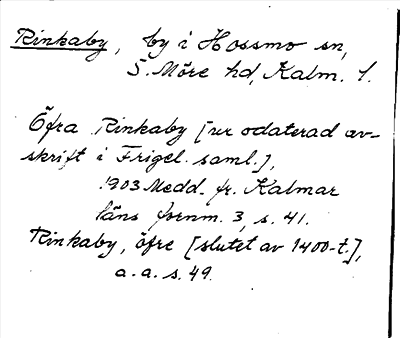 Rinkaby, by i Hossmo sn,
S. Möre hd, Kalm. l.
Öfra Rinkaby [ur odaterad av-
skrift i Frigel. saml.],
1903 Medd. fr. Kalmar
läns fornm. 3, s. 41.
Rinkaby, öfre [slutet av 1400-t.],
a.a. s. 49.